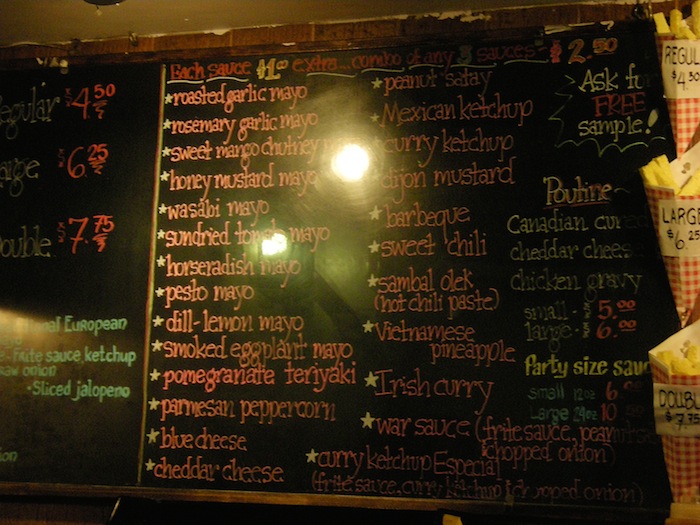 Each sauce $1.00 extra... combo of any 3 sauces $2.50
egular $4.50
arge $6.25
ouble $7.75
European
frite sauce, ketchup
onion
• Sliced jalopeno
★roasted garlic mayo
★rosemary garlic mayo
★sweet mango chutney
★honey mustard mayo
★wasabi mayo
★sundried mayo
★horseradish mayo
★pesto mayo
★dill-lemon mayo
★smoked eggplant mayo
★pomegranate teriyaki
★parmesan peppercorn
★blue cheese
★cheddar cheese
★peanut satay
★Mexican ketchup
curry ketchup
dijon mustard
★barbeque
★sweet chili
★sambal olek
(hot chili paste)
★Vietnamese
pineapple
★Irish curry
★war sauce (frite sauce, peanut
chopped onion)
★curry ketchup Especial
(frite sauce, curry ketchup onion)
Ask for
FREE
sample!
Poutine
Canadian
cheddar cheese
chicken gravy
small - 5.00
large - 6.00
Party size
small 12oz 6.
Large 24oz 10
REGUL
$4.50
LARGE
$6.25
DOUBL
$7.75